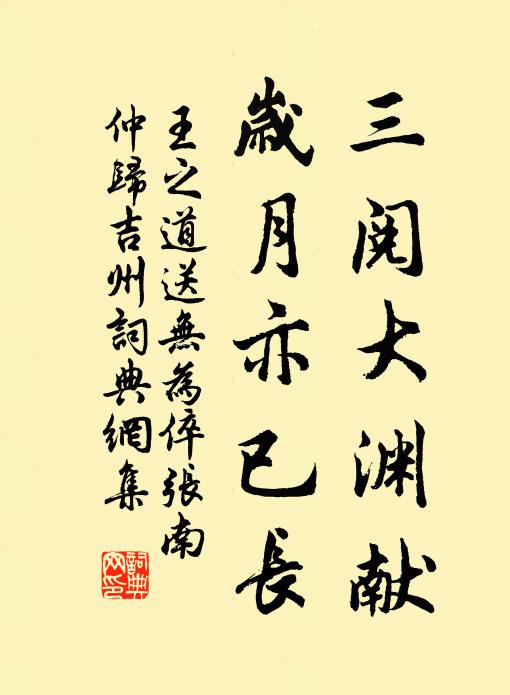 三阅大渊献
歲月亦已長
王之道送無為倅張南
仲歸吉州詞典網集
詞典网印